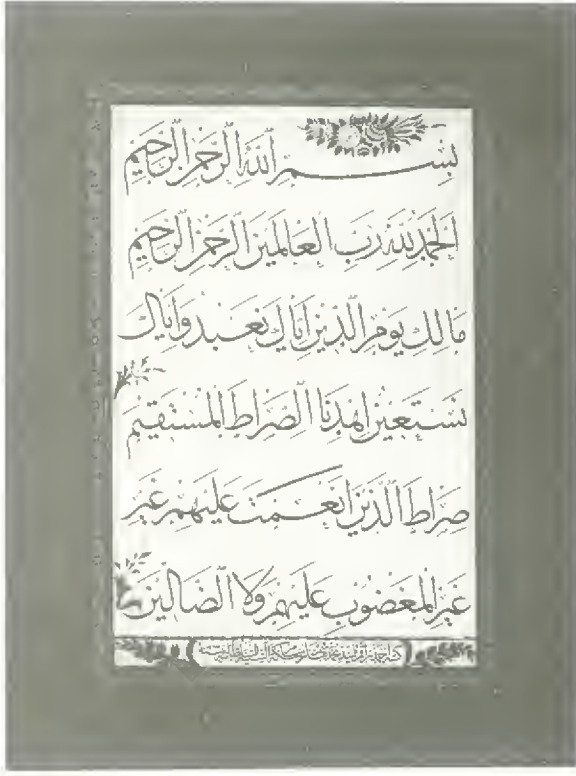 بِسْمِ اللّٰهِ الرَّحْمٰنِ الرَّحِيمِ
اَلْحَمْدُ لِلّٰهِ رَبِّ الْعَالَمِينَ الرَّحْمٰنِ الرَّحِيمِ
مَالِكِ يَوْمِ الدِّينِ اِيَّاكَ نَعْبُدُ وَاِيَّاكَ
نَسْتَعِينُ اِهْدِنَا الصِّرَاطَ الْمُسْتَقِيمَ
صِرَاطَ الَّذِينَ اَنْعَمْتَ عَلَيْهِمْ غَيْرِ
غَيْرِ الْمَغْضُوبِ عَلَيْهِمْ وَلَا الضَّالِّينَ